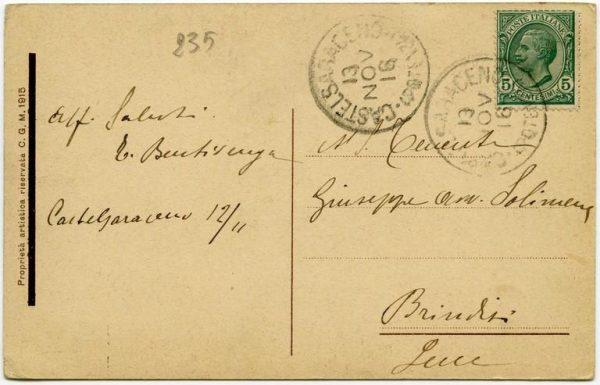 235
CASTELSARACENO
13
NOV
16
POSTE ITALIANE
5 5
CENTESIMI
CASTELSARACENO
13
NOV
16
Aff. Saluti
E. Bentivenga
Castelsaraceno 12/11
Tenente
Giuseppe avv. Solimena
Brindisi
Lecce
Proprietà artistica riservata C. G. M. 1915